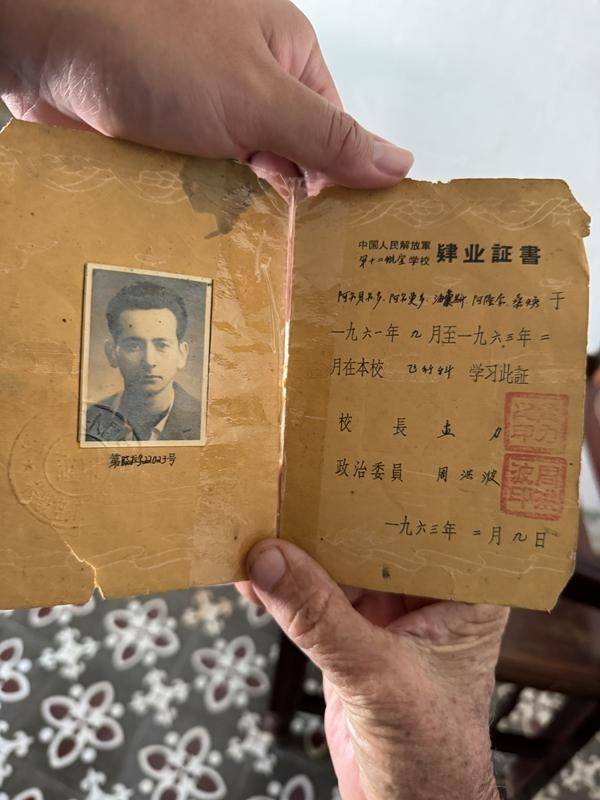 第临时22023号
中国人民解放軍
第十二航空学校 肄业証書
阿尔贝尔多.阿尔更多.阿隆舍.桑 于
一九六一年九月至一九六三年二
月在本校 飞行科 学习此証
校 長 力
政治委員 周洪波
周洪波印
一九六三年二月九日